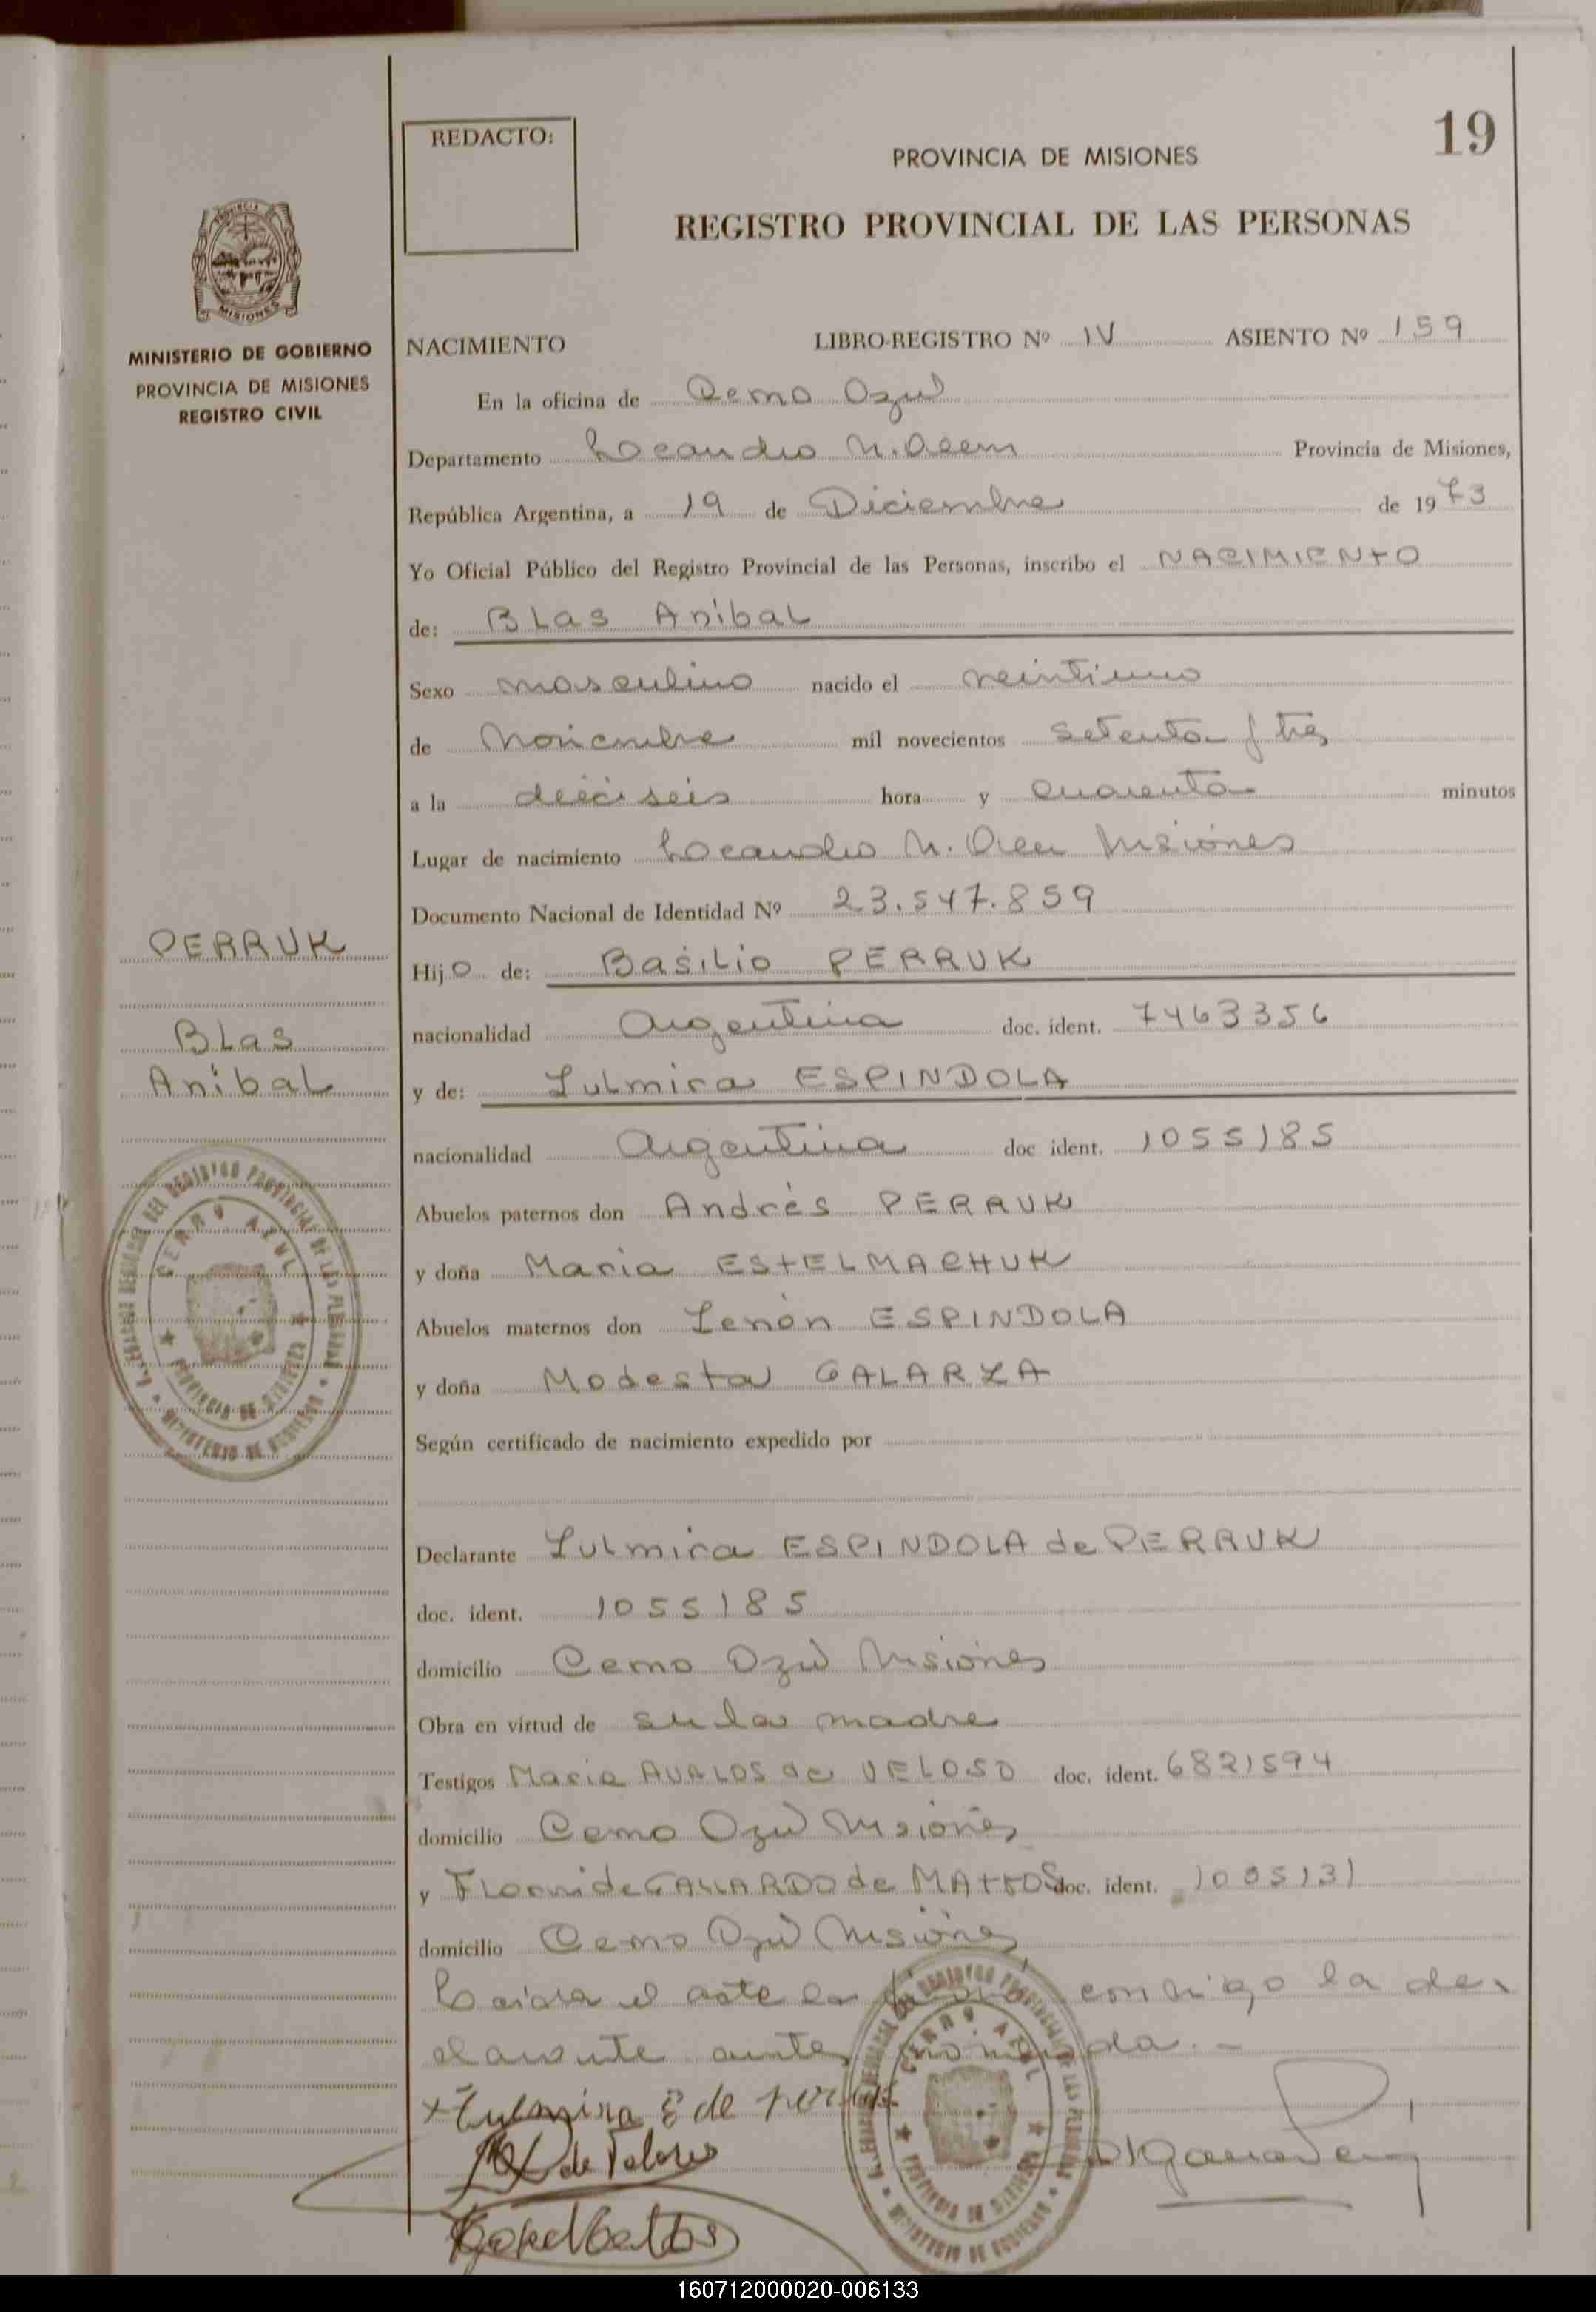 19
REDACTO:
PROVINCIA DE MISIONES
REGISTRO PROVINCIAL DE LAS PERSONAS
MINISTERIO DE GOBIERNO
PROVINCIA DE MISIONES
REGISTRO CIVIL
NACIMIENTO LIBRO-REGISTRO Nº IV ASIENTO Nº 159
En la oficina de Cerro Azul
Departamento Leandro N. Alem Provincia de Misiones,
República Argentina, a 19 de Diciembre de 1973
Yo Oficial Público del Registro Provincial de las Personas, inscribo el NACIMIENTO
de: Blas Anibal
Sexo masculino nacido el veintiuno
de Noviembre mil novecientos setenta y tres
a la dieciseis hora y cuarenta minutos
Lugar de nacimiento Leandro N. Alem Misiones
Documento Nacional de Identidad Nº 23.547.859
PERRUK
Blas
Anibal
Hijo de: Basilio PERRUK
nacionalidad Argentina doc. ident. 7463356
y de: Zulmira ESPINDOLA
nacionalidad Argentina doc ident. 1055185
Abuelos paternos don Andrés PERRUK
y doña Maria ESTELMACHUK
Abuelos maternos don Zenón ESPINDOLA
y doña Modesta GALARZA
Según certificado de nacimiento expedido por
Declarante Zulmira ESPINDOLA de PERRUK
doc. ident. 1055185
domicilio Cerro Azul Misiones
Obra en virtud de ser la madre
Testigos Maria AVALOS de VELOSO doc. ident. 6821594
domicilio Cerro Azul Misiones
y GALLARDO de MATTOS doc. ident. 1005131
domicilio Cerro Azul Misiones
Leida el acta la conmigo la de-
clarante antes
Zulmira E de
CERRO AZUL
PROVINCIA DE MISIONES
MINISTERIO DE GOBIERNO
160712000020-006133